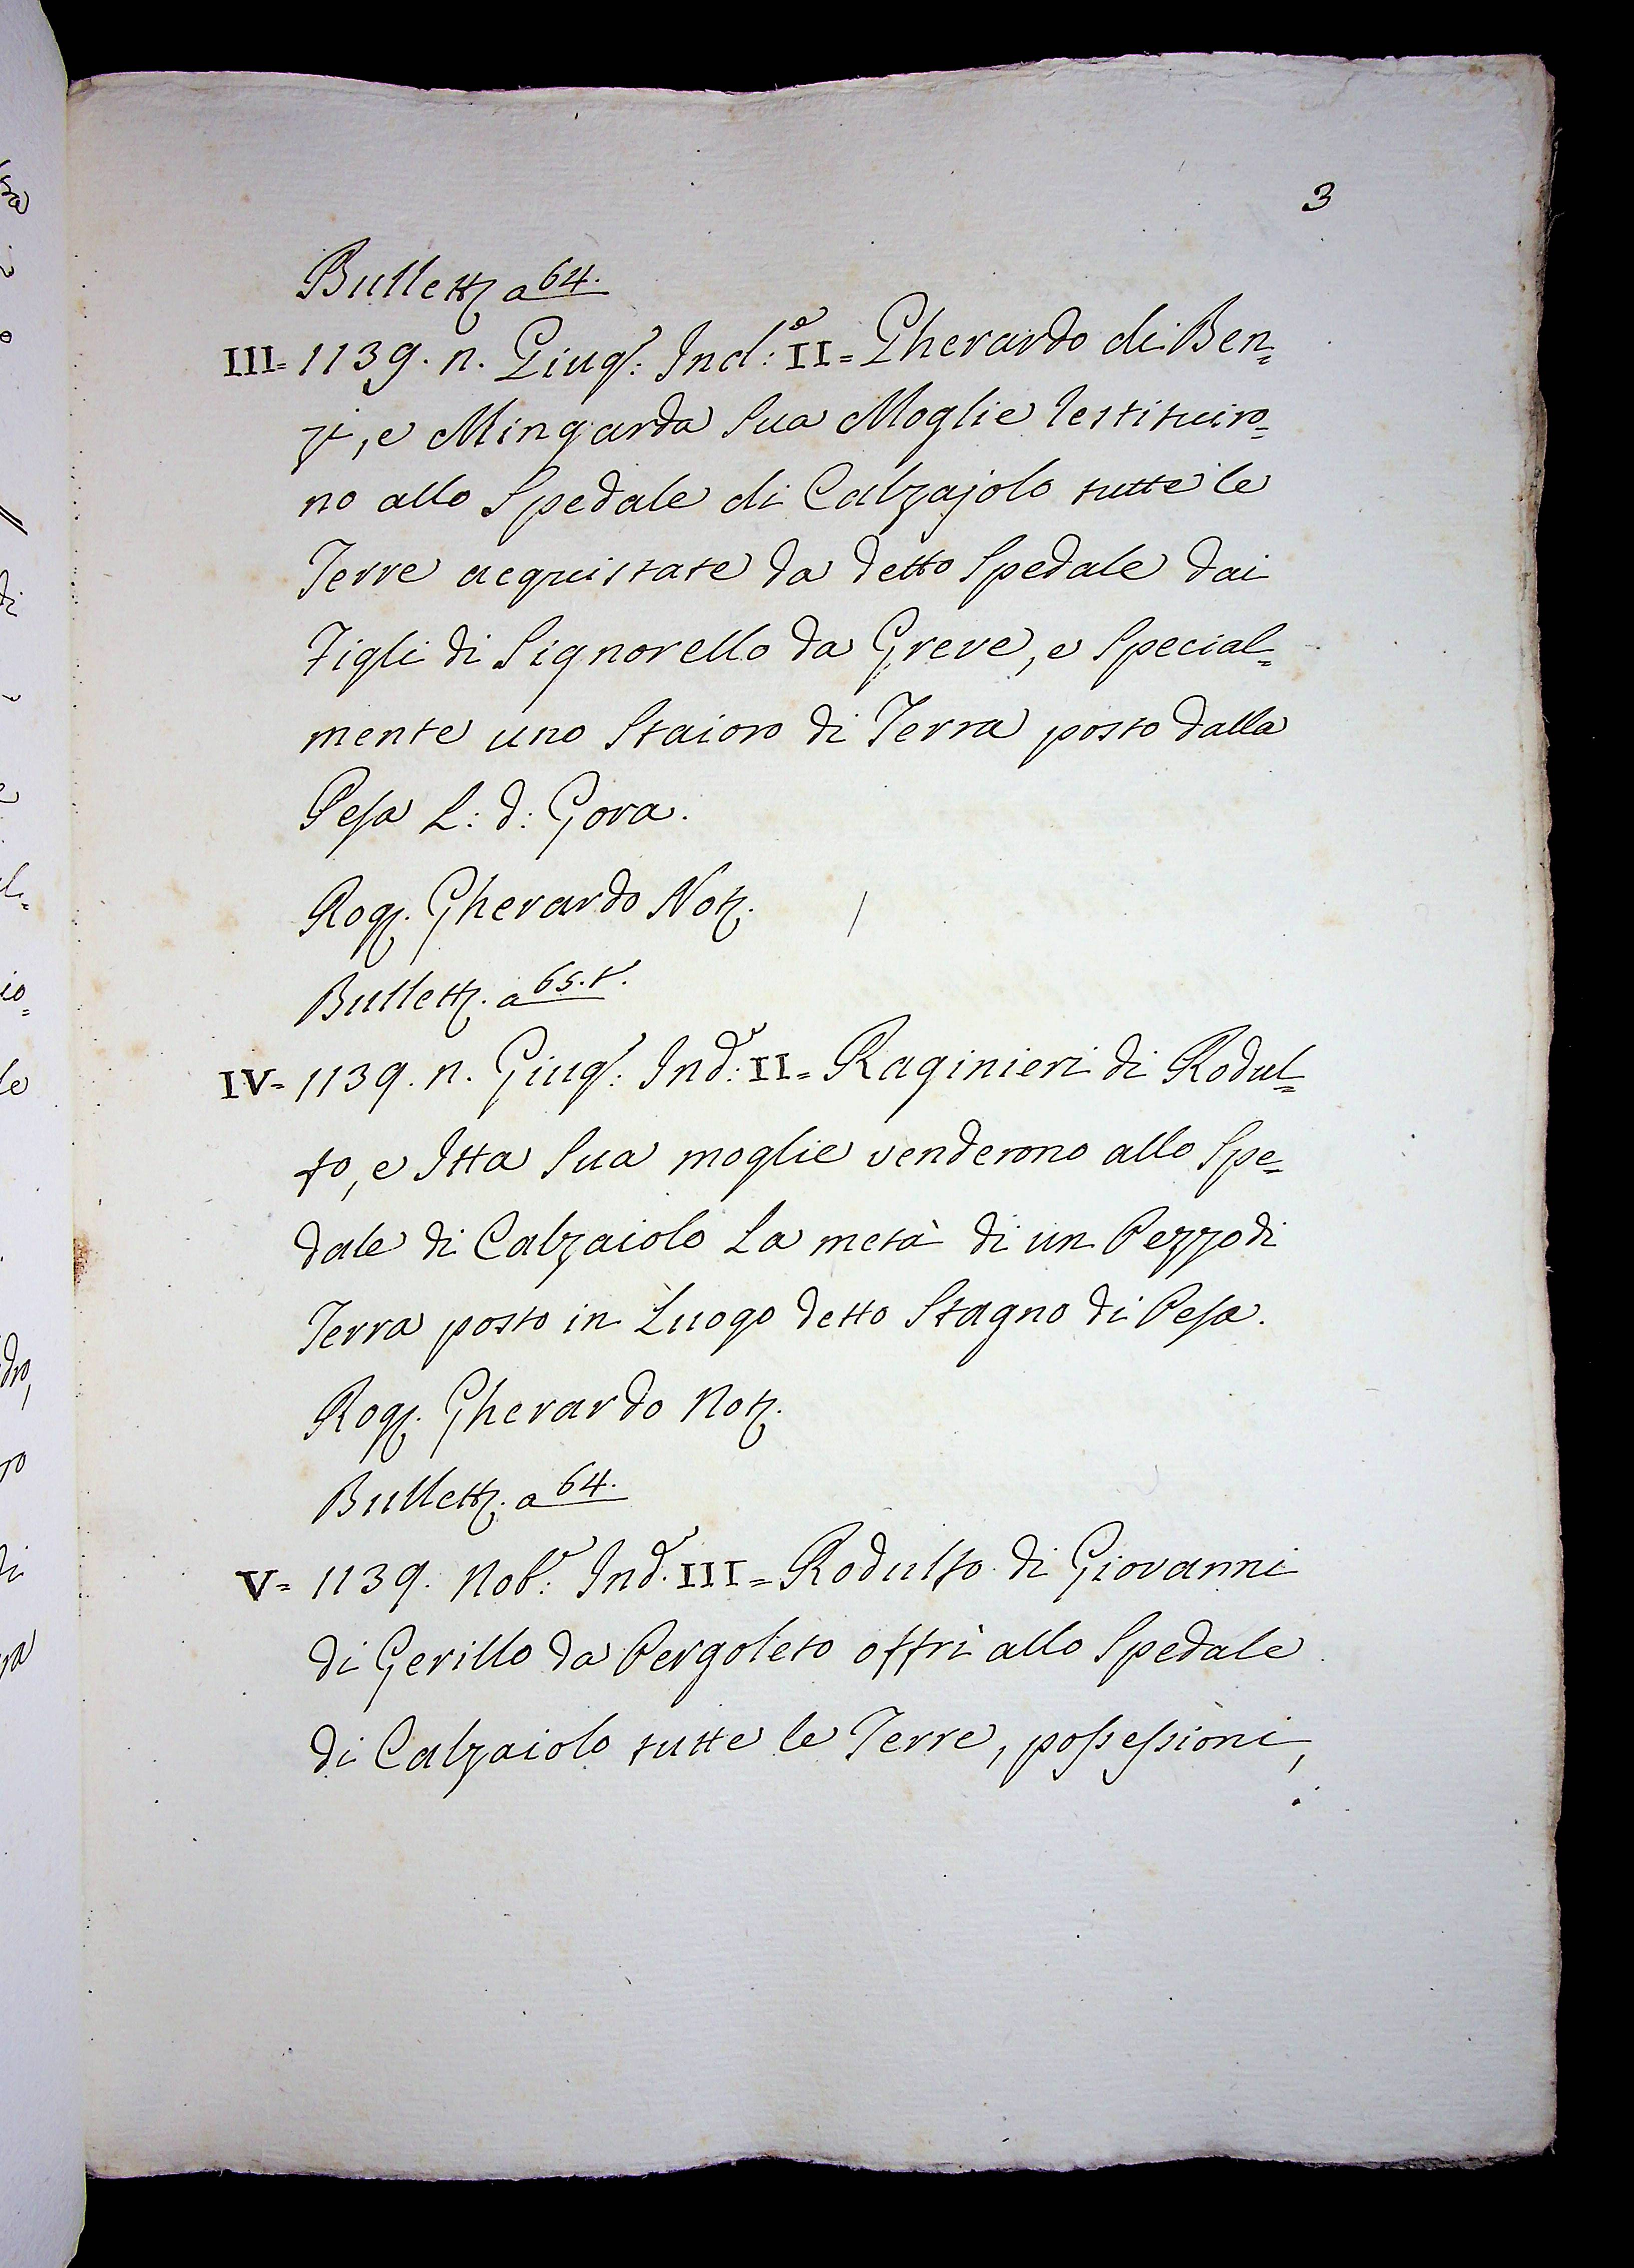 3
Bullett. a 64.
III= 1139. n. Giug.: Ind.e: II= Gherardo di Ben=
zi, e Mingarda Sua Moglie restituiro=
no allo Spedale di Calzajolo tutte le
Terre acquistate da detto Spedale dai
Figli di Signorello da Greve, e Special=
mente uno Staioro di Terra posto dalla
Pesa L: d: Gora.
Rog. Gherardo Not.
Bullett. a 65.t.
IV= 1139. n. Giug.: Ind.e: II= Raginieri di Rodul=
fo, e Itta Sua moglie venderono allo Spe=
dale di Calzaiolo La metà di un Pezzo di
Terra posto in Luogo detto Stagno di Pesa.
Rog. Gherardo Not.
Bullett. a 64.
V= 1139. Nob.e: Ind.e III= Rodulfo di Giovanni
di Gerillo da Pergoleto offrì allo Spedale
di Calzaiolo tutte le Terre, possessioni,